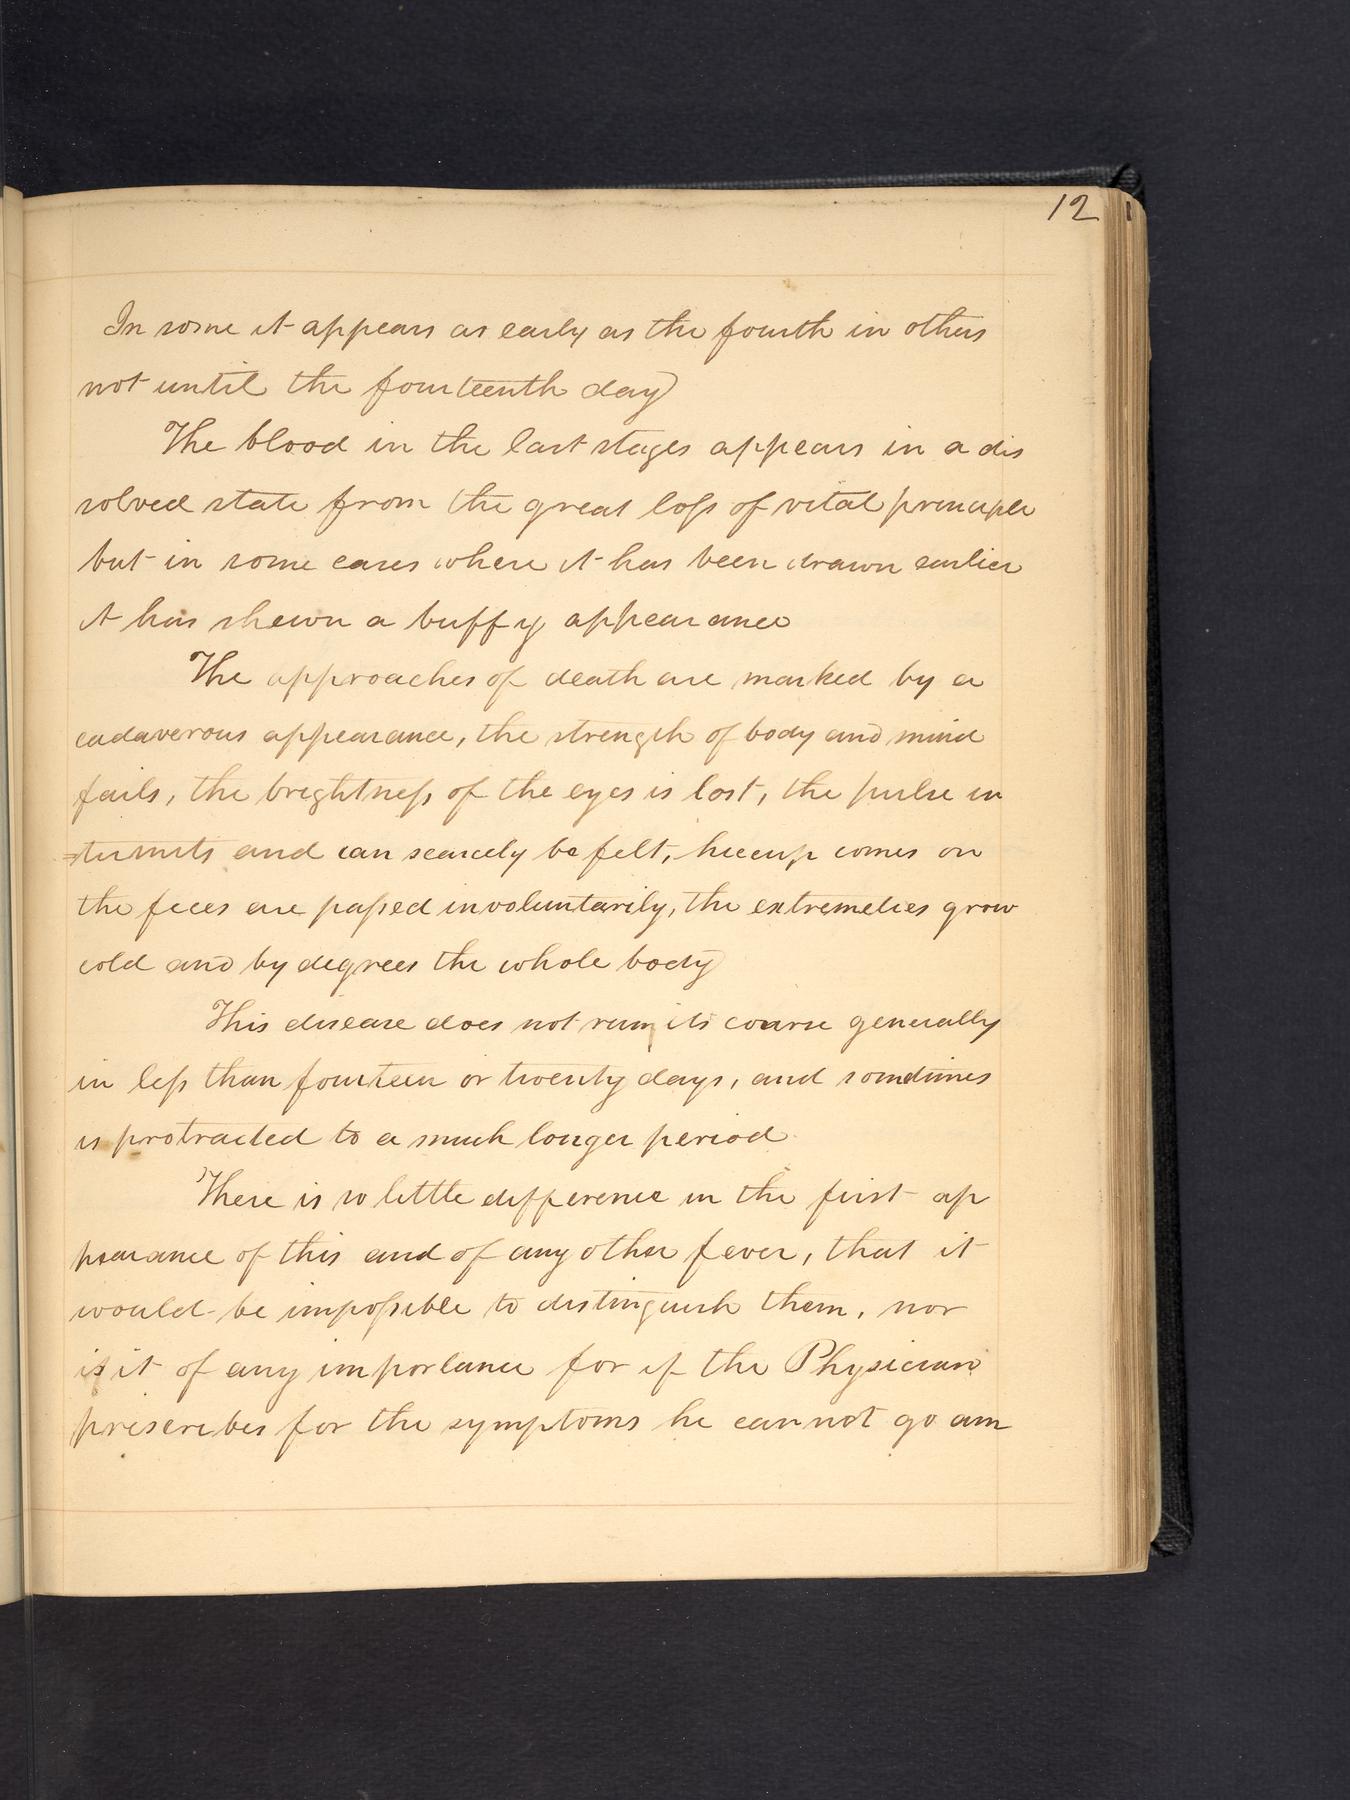 12
In some it appears as early as the fourth in others
not until the fourteenth day
The blood in the last stages appears in a dis
solved state from the great loss of vital principle
but in some cases where it has been drawn earlier
it has shewn a buffy appearance
The approaches of death are marked by a
cadaverous appearance, the strength of body and mind
fails, the brightness of the eyes is lost, the pulse in
=termits and can scarcely be felt, hiccup comes on
the feces are passed involuntarily, the extremeties grow
cold and by degrees the whole body
This disease does not run its course generally
in less than fourteen or twenty days, and sometimes
is protracted to a much longer period
There is so little difference in the first ap
pearance of this and of any other fever, that it
would be impossible to distinguish them, nor
is it of any importance for if the Physician
prescribes for the symptoms he cannot go am